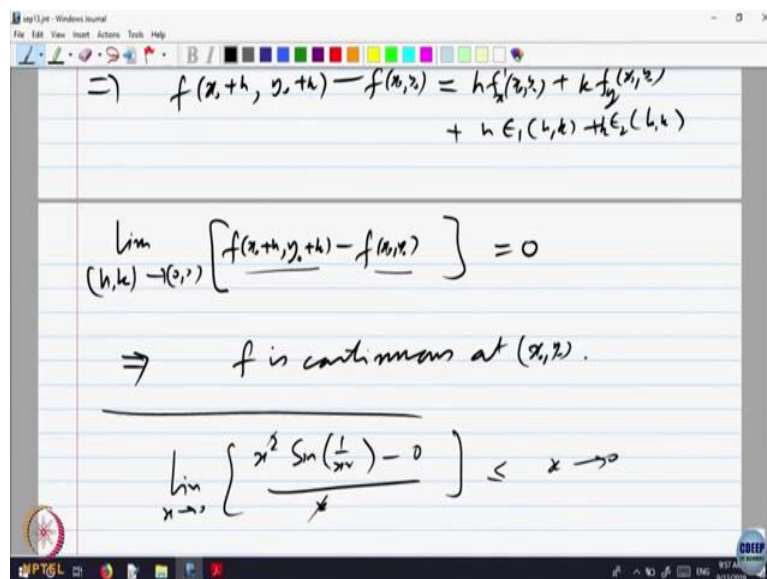 sep13.jnt - Windows Journal
File Edit View Insert Actions Tools Help
B I
⇒ f(x₀+h, y₀+k) − f(x₀,y₀) = h fₓ(x₀,y₀) + k f_y(x₀,y₀)
+ h ϵ₁(h,k) + k ϵ₂(h,k)
lim (h,k)→(0,0) [ f(x₀+h, y₀+k) − f(x₀,y₀) ] = 0
⇒ f is continuous at (x₀,y₀).
lim x→0 [ x² Sin(1/x²) − 0 / x ] ≤ x → 0
NPTEL
ENG
9:57 AM
9/13/2019
CDEEP
IIT BOMBAY